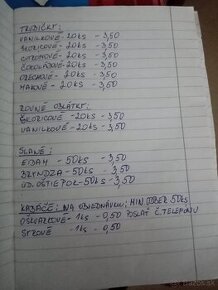 TRUBIČKY:
VANILKOVÉ - 20KS - 3,50
ŠKORICOVÉ - 20KS - 3,50
CITRONOVÉ - 20KS - 3,50
ČOKOLÁDOVÉ - 20KS - 3,50
ORECHOVÉ - 20KS - 3,50
MAKOVÉ - 20KS - 3,50
ROVNÉ OBLÁTKY:
ŠKORICOVÉ - 20KS - 3,50
VANILKOVÉ - 20KS - 3,50
SLANÉ:
EDAM - 50KS - 3,50
BRYNDZA - 50KS - 3,50
- 50KS - 3,50
NA OBJEDNÁVKU: MIN ODBER 50KS
OŠKVARKOVÉ - 1KS - 0,50 POSLAŤ Č. TELEFONU
SYROVÉ - 1KS - 0,50